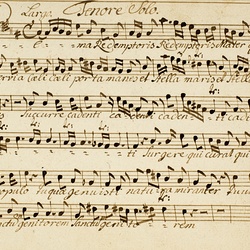 Largo Tenore Solo.
ma Redemptoris Redemptoris Mater
caeli caeli porta manes et Stella maris et Stella
Succurre cadenti cadenti cade ti cade
ti Surgere qui curat qui
populo tu quae genuisti natura mirante tu
genitorem Sanctu genito rem